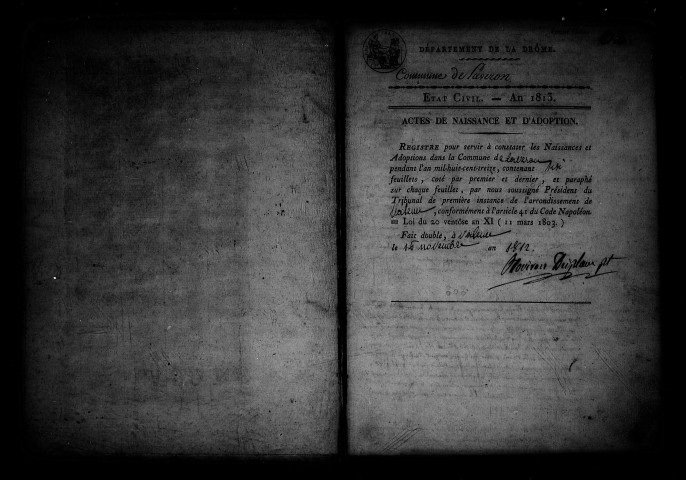 DÉPARTEMENT DE LA DRÔME.
Commune de Laveron
ETAT CIVIL. — AN 1813.
ACTES DE NAISSANCE ET D'ADOPTION.
REGISTRE pour servir à constater les Naissances et
Adoptions dans la Commune de Laveron
pendant l'an mil-huit-cent-treize, contenant
feuillets, coté par premier et dernier, et paraphé
sur chaque feuillet, par nous soussigné Président du
Tribunal de première instance de l'arrondissement de
Valence, conformément à l'article 41 du Code Napoléon
ou Loi du 20 ventôse an XI (11 mars 1803.)
Fait double, à Valence
le novembre an 1812.